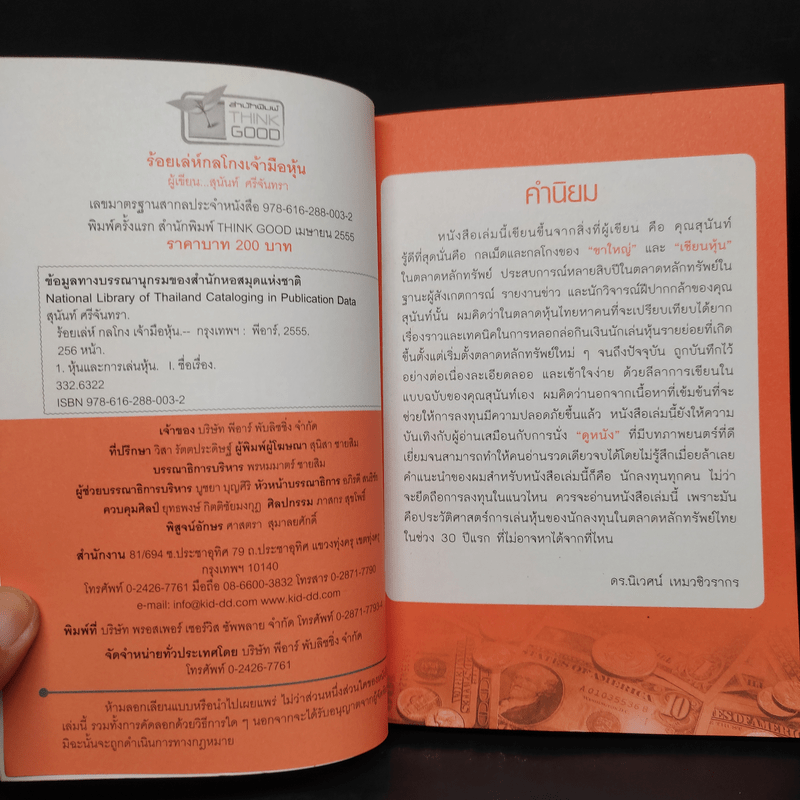 สำนักพิมพ์
THINK
GOOD
ร้อยเล่ห์กลโกงเจ้ามือหุ้น
ผู้เขียน...สุนันท์ ศรีจันทรา
เลขมาตรฐานสากลประจำหนังสือ 978-616-288-003-2
พิมพ์ครั้งแรก สำนักพิมพ์ THINK GOOD เมษายน 2555
ราคาบาท 200 บาท
ข้อมูลทางบรรณานุกรมของสำนักหอสมุดแห่งชาติ
National Library of Thailand Cataloging in Publication Data
สุนันท์ ศรีจันทรา.
ร้อยเล่ห์ กลโกง เจ้ามือหุ้น.-- กรุงเทพฯ : พีอาร์, 2555.
256 หน้า.
1. หุ้นและการเล่นหุ้น. I. ชื่อเรื่อง.
332.6322
ISBN 978-616-288-003-2
เจ้าของ บริษัท พีอาร์ พับลิชชิ่ง จำกัด
ที่ปรึกษา วิสา รัตตประดิษฐ์ ผู้พิมพ์ผู้โฆษณา สุนิสา ชายสิม
บรรณาธิการบริหาร พรหมมาตร์ ชายสิม
ผู้ช่วยบรรณาธิการบริหาร บูชยา บุญศิริ หัวหน้าบรรณาธิการ อภิรดี
ควบคุมศิลป์ ยุทธพงษ์ กิตติชัยมงกุฎ ศิลปกรรม ภาสกร สุขโพธิ์
พิสูจน์อักษร ศาสตรา สุมาลยศักดิ์
สำนักงาน 81/694 ซ.ประชาอุทิศ 79 ถ.ประชาอุทิศ แขวงทุ่งครุ เขตทุ่งครุ
กรุงเทพฯ 10140
โทรศัพท์ 0-2426-7761 มือถือ 08-6600-3832 โทรสาร 0-2871-7790
e-mail: info@kid-dd.com www.kid-dd.com
พิมพ์ที่ บริษัท พรอสเพอร์ เซอร์วิส ซัพพลาย จำกัด โทรศัพท์ 0-2871-7793-4
จัดจำหน่ายทั่วประเทศโดย บริษัท พีอาร์ พับลิชชิ่ง จำกัด
โทรศัพท์ 0-2426-7761
ห้ามลอกเลียนแบบหรือนำไปเผยแพร่ ไม่ว่าส่วนหนึ่งส่วนใดของหนังสือ
เล่มนี้ รวมทั้งการคัดลอกด้วยวิธีการใด ๆ นอกจากจะได้รับอนุญาต
มิฉะนั้นจะถูกดำเนินการทางกฎหมาย
คำนิยม
หนังสือเล่มนี้เขียนขึ้นจากสิ่งที่ผู้เขียน คือ คุณสุนันท์
รู้ดีที่สุดนั่นคือ กลเม็ดและกลโกงของ "ขาใหญ่" และ "เซียนหุ้น"
ในตลาดหลักทรัพย์ ประสบการณ์หลายสิบปีในตลาดหลักทรัพย์ใน
ฐานะผู้สังเกตการณ์ รายงานข่าว และนักวิจารณ์ฝีปากกล้าของคุณ
สุนันท์นั้น ผมคิดว่าในตลาดหุ้นไทยหาคนที่จะเปรียบเทียบได้ยาก
เรื่องราวและเทคนิคในการหลอกล่อกินเงินนักเล่นหุ้นรายย่อยที่เกิด
ขึ้นตั้งแต่เริ่มตั้งตลาดหลักทรัพย์ใหม่ ๆ จนถึงปัจจุบัน ถูกบันทึกไว้
อย่างต่อเนื่องละเอียดลออ และเข้าใจง่าย ด้วยลีลาการเขียนใน
แบบฉบับของคุณสุนันท์เอง ผมคิดว่านอกจากเนื้อหาที่เข้มข้นที่จะ
ช่วยให้การลงทุนมีความปลอดภัยขึ้นแล้ว หนังสือเล่มนี้ยังให้ความ
บันเทิงกับผู้อ่านเสมือนกับการนั่ง "ดูหนัง" ที่มีบทภาพยนตร์ที่ดี
เยี่ยมจนสามารถทำให้คนอ่านรวดเดียวจบได้โดยไม่รู้สึกเมื่อยล้าเลย
คำแนะนำของผมสำหรับหนังสือเล่มนี้ก็คือ นักลงทุนทุกคน ไม่ว่า
จะยึดถือการลงทุนในแนวไหน ควรจะอ่านหนังสือเล่มนี้ เพราะมัน
คือประวัติศาสตร์การเล่นหุ้นของนักลงทุนในตลาดหลักทรัพย์ไทย
ในช่วง 30 ปีแรก ที่ไม่อาจหาได้จากที่ไหน
ดร.นิเวศน์ เหมวชิรวรากร